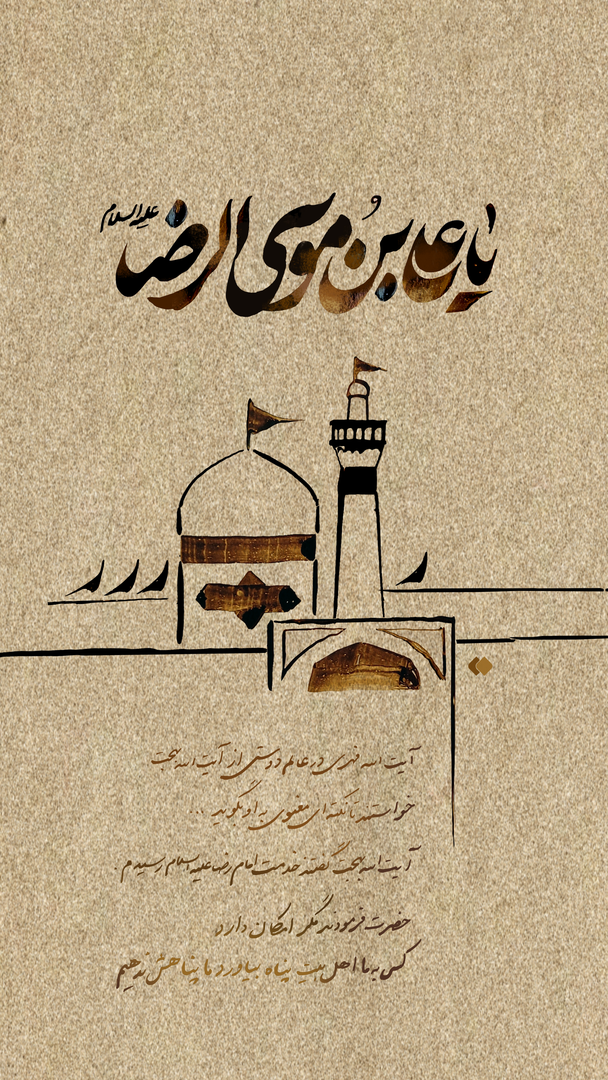 یا علی بن موسی الرضا علیه السلام
آیت الله فهری در عالم دوستی از آیت الله بهجت
خواستند تا نکته‌ای معنوی به او بگوید ...
آیت الله بهجت گفتند خدمت امام رضا علیه السلام رسیدم.
حضرت فرمودند مگر امکان دارد
کسی به ما اهل بیت پناه بیاورد و ما پناهش ندهیم